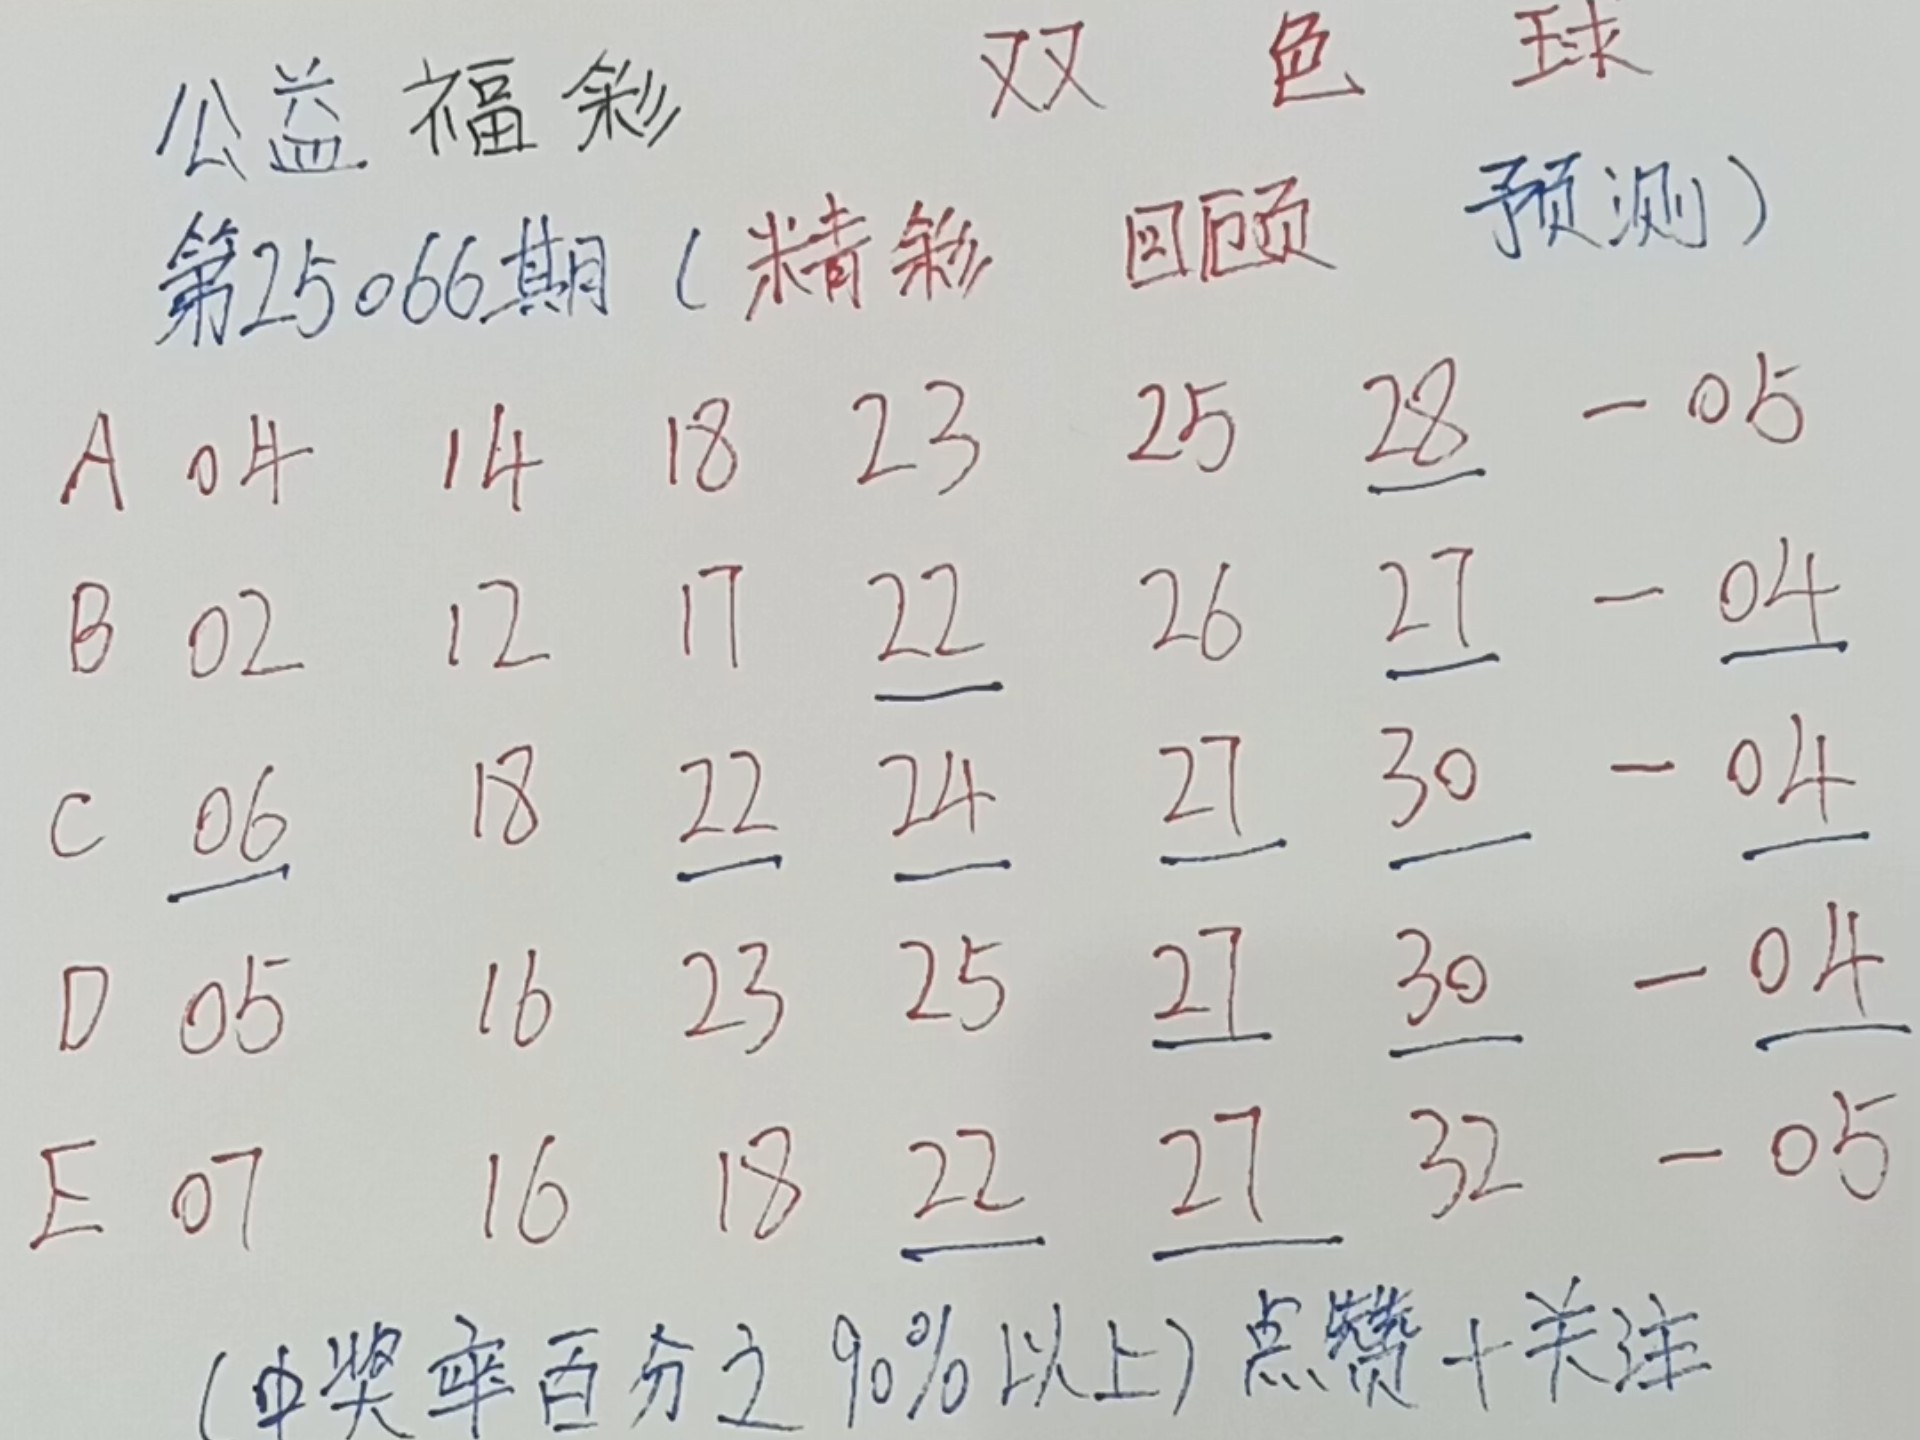 公益福彩 双色球
第25066期(精彩回顾预测)
A 04 14 18 23 25 28 - 05
B 02 12 17 22 26 27 - 04
C 06 18 22 24 27 30 - 04
D 05 16 23 25 27 30 - 04
E 07 16 18 22 27 32 - 05
(中奖率百分之90%以上)点赞+关注